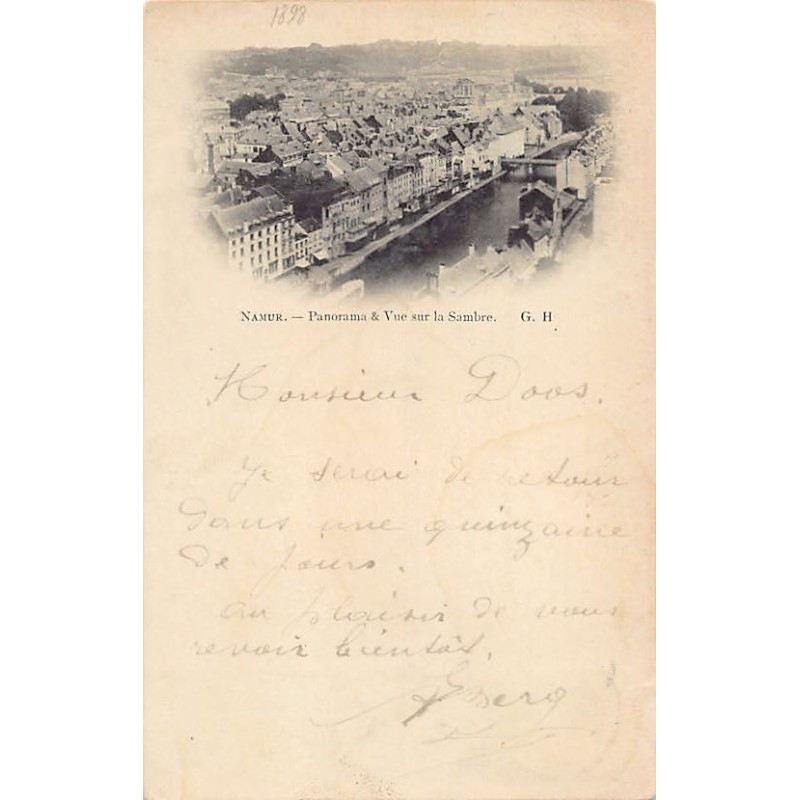 1898
NAMUR. — Panorama & Vue sur la Sambre. G. H
Monsieur Doos.
Je serai de retour
dans une quinzaine
de jours.
au plaisir de vous
revoir bientôt.